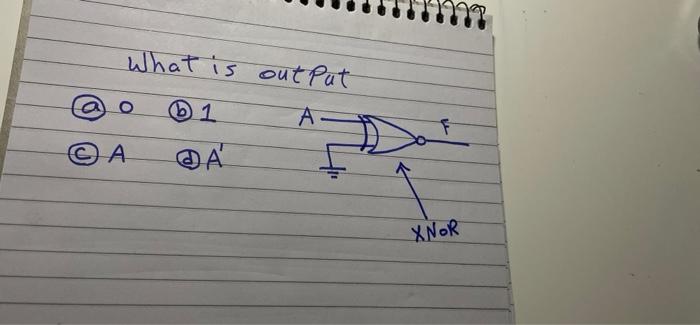 What is output
ⓐ 0 ⓑ 1
ⓒ A ⓓ A'
A
F
XNOR